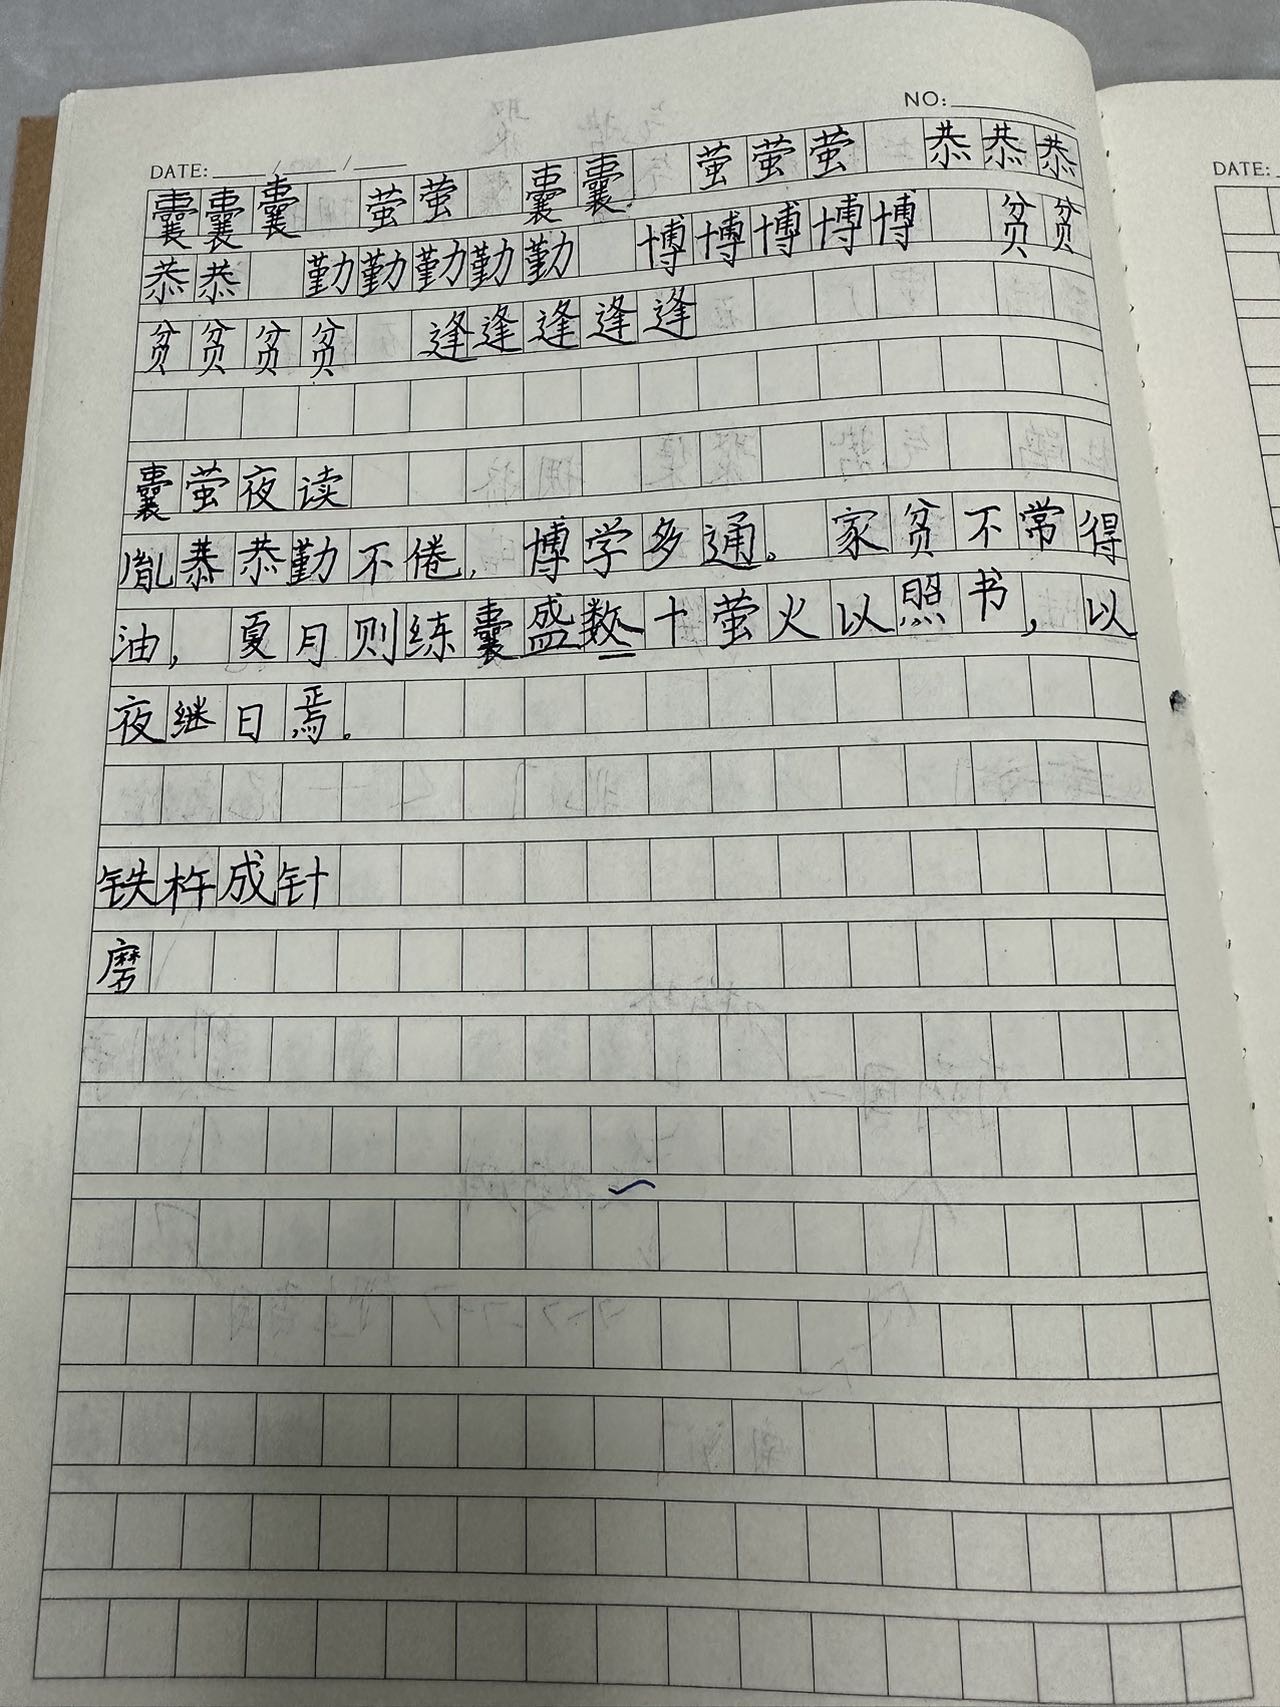 NO:
DATE: / /
DATE:
囊囊囊 萤萤 囊囊 萤萤萤 恭恭恭
恭恭 勤勤勤勤勤 博博博博博 贫贫
贫贫贫贫 逢逢逢逢逢
囊萤夜读
胤恭恭勤不倦，博学多通。家贫不常得
油，夏月则练囊盛数十萤火以照书，以
夜继日焉。
铁杵成针
磨